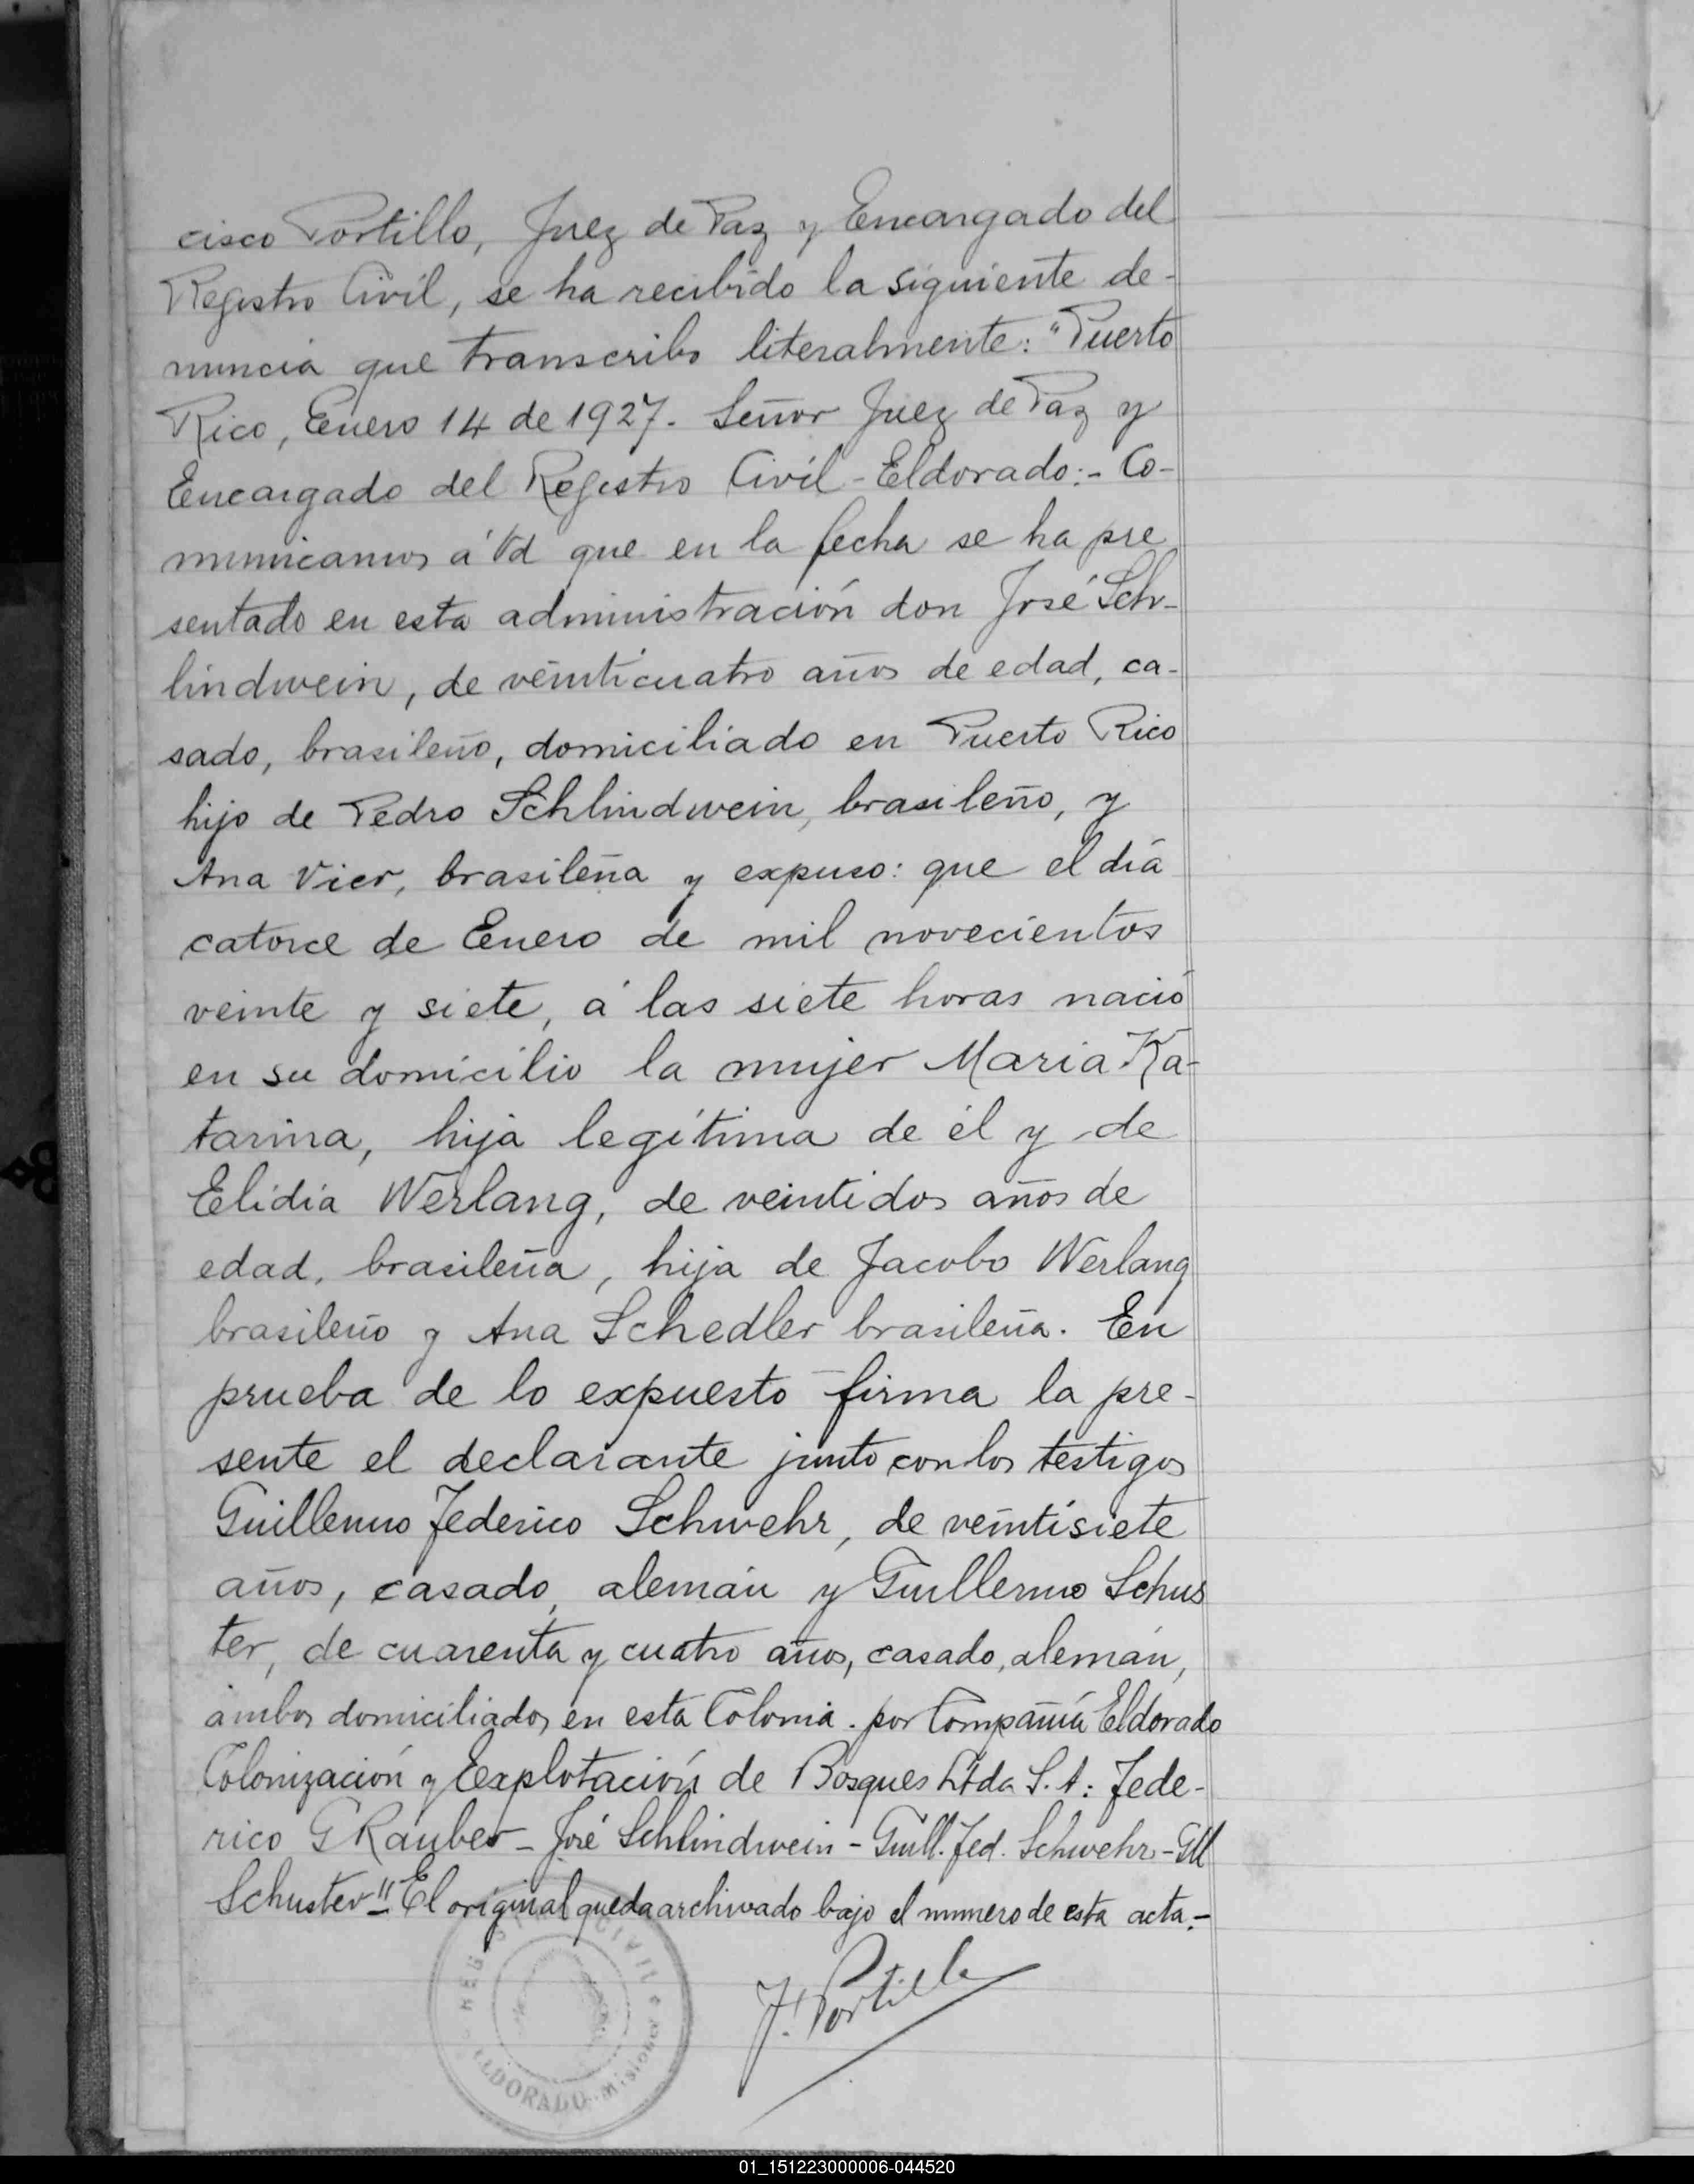 cisco Portillo, Juez de Paz y Encargado del
Registro Civil, se ha recibido la siguiente de-
nuncia que transcribo literalmente: "Puerto
Rico, Enero 14 de 1927. Señor Juez de Paz y
Encargado del Registro Civil - Eldorado:- Co-
municamos á Vd que en la fecha se ha pre
sentado en esta administración don José Sch-
lindwein, de veinticuatro años de edad, ca-
sado, brasileño, domiciliado en Puerto Rico
hijo de Pedro Schlindwein, brasileño, y
Ana Vier, brasileña y expuso: que el día
catorce de Enero de mil novecientos
veinte y siete, á las siete horas nació
en su domicilio la mujer Maria Ka-
tarina, hija legítima de él y de
Elidia Werlang, de veintidos años de
edad, brasileña, hija de Jacobo Werlang
brasileño y Ana Schedler brasileña. En
prueba de lo expuesto firma la pre-
sente el declarante junto con los testigos
Guillermo Federico Schwehr, de veintisiete
años, casado, alemán y Guillermo Schus
ter, de cuarenta y cuatro años, casado, alemán,
ambos domiciliados en esta Colonia. por Compañía Eldorado
Colonización y Explotación de Bosques Ltda S.A: Fede-
rico G Rauber - José Schlindwein - Guill. Fed. Schwehr - Gll
Schuster" - El original queda archivado bajo el numero de esta acta.-
F. Portillo
REGISTRO CIVIL
ELDORADO - Misiones
01_151223000006-044520